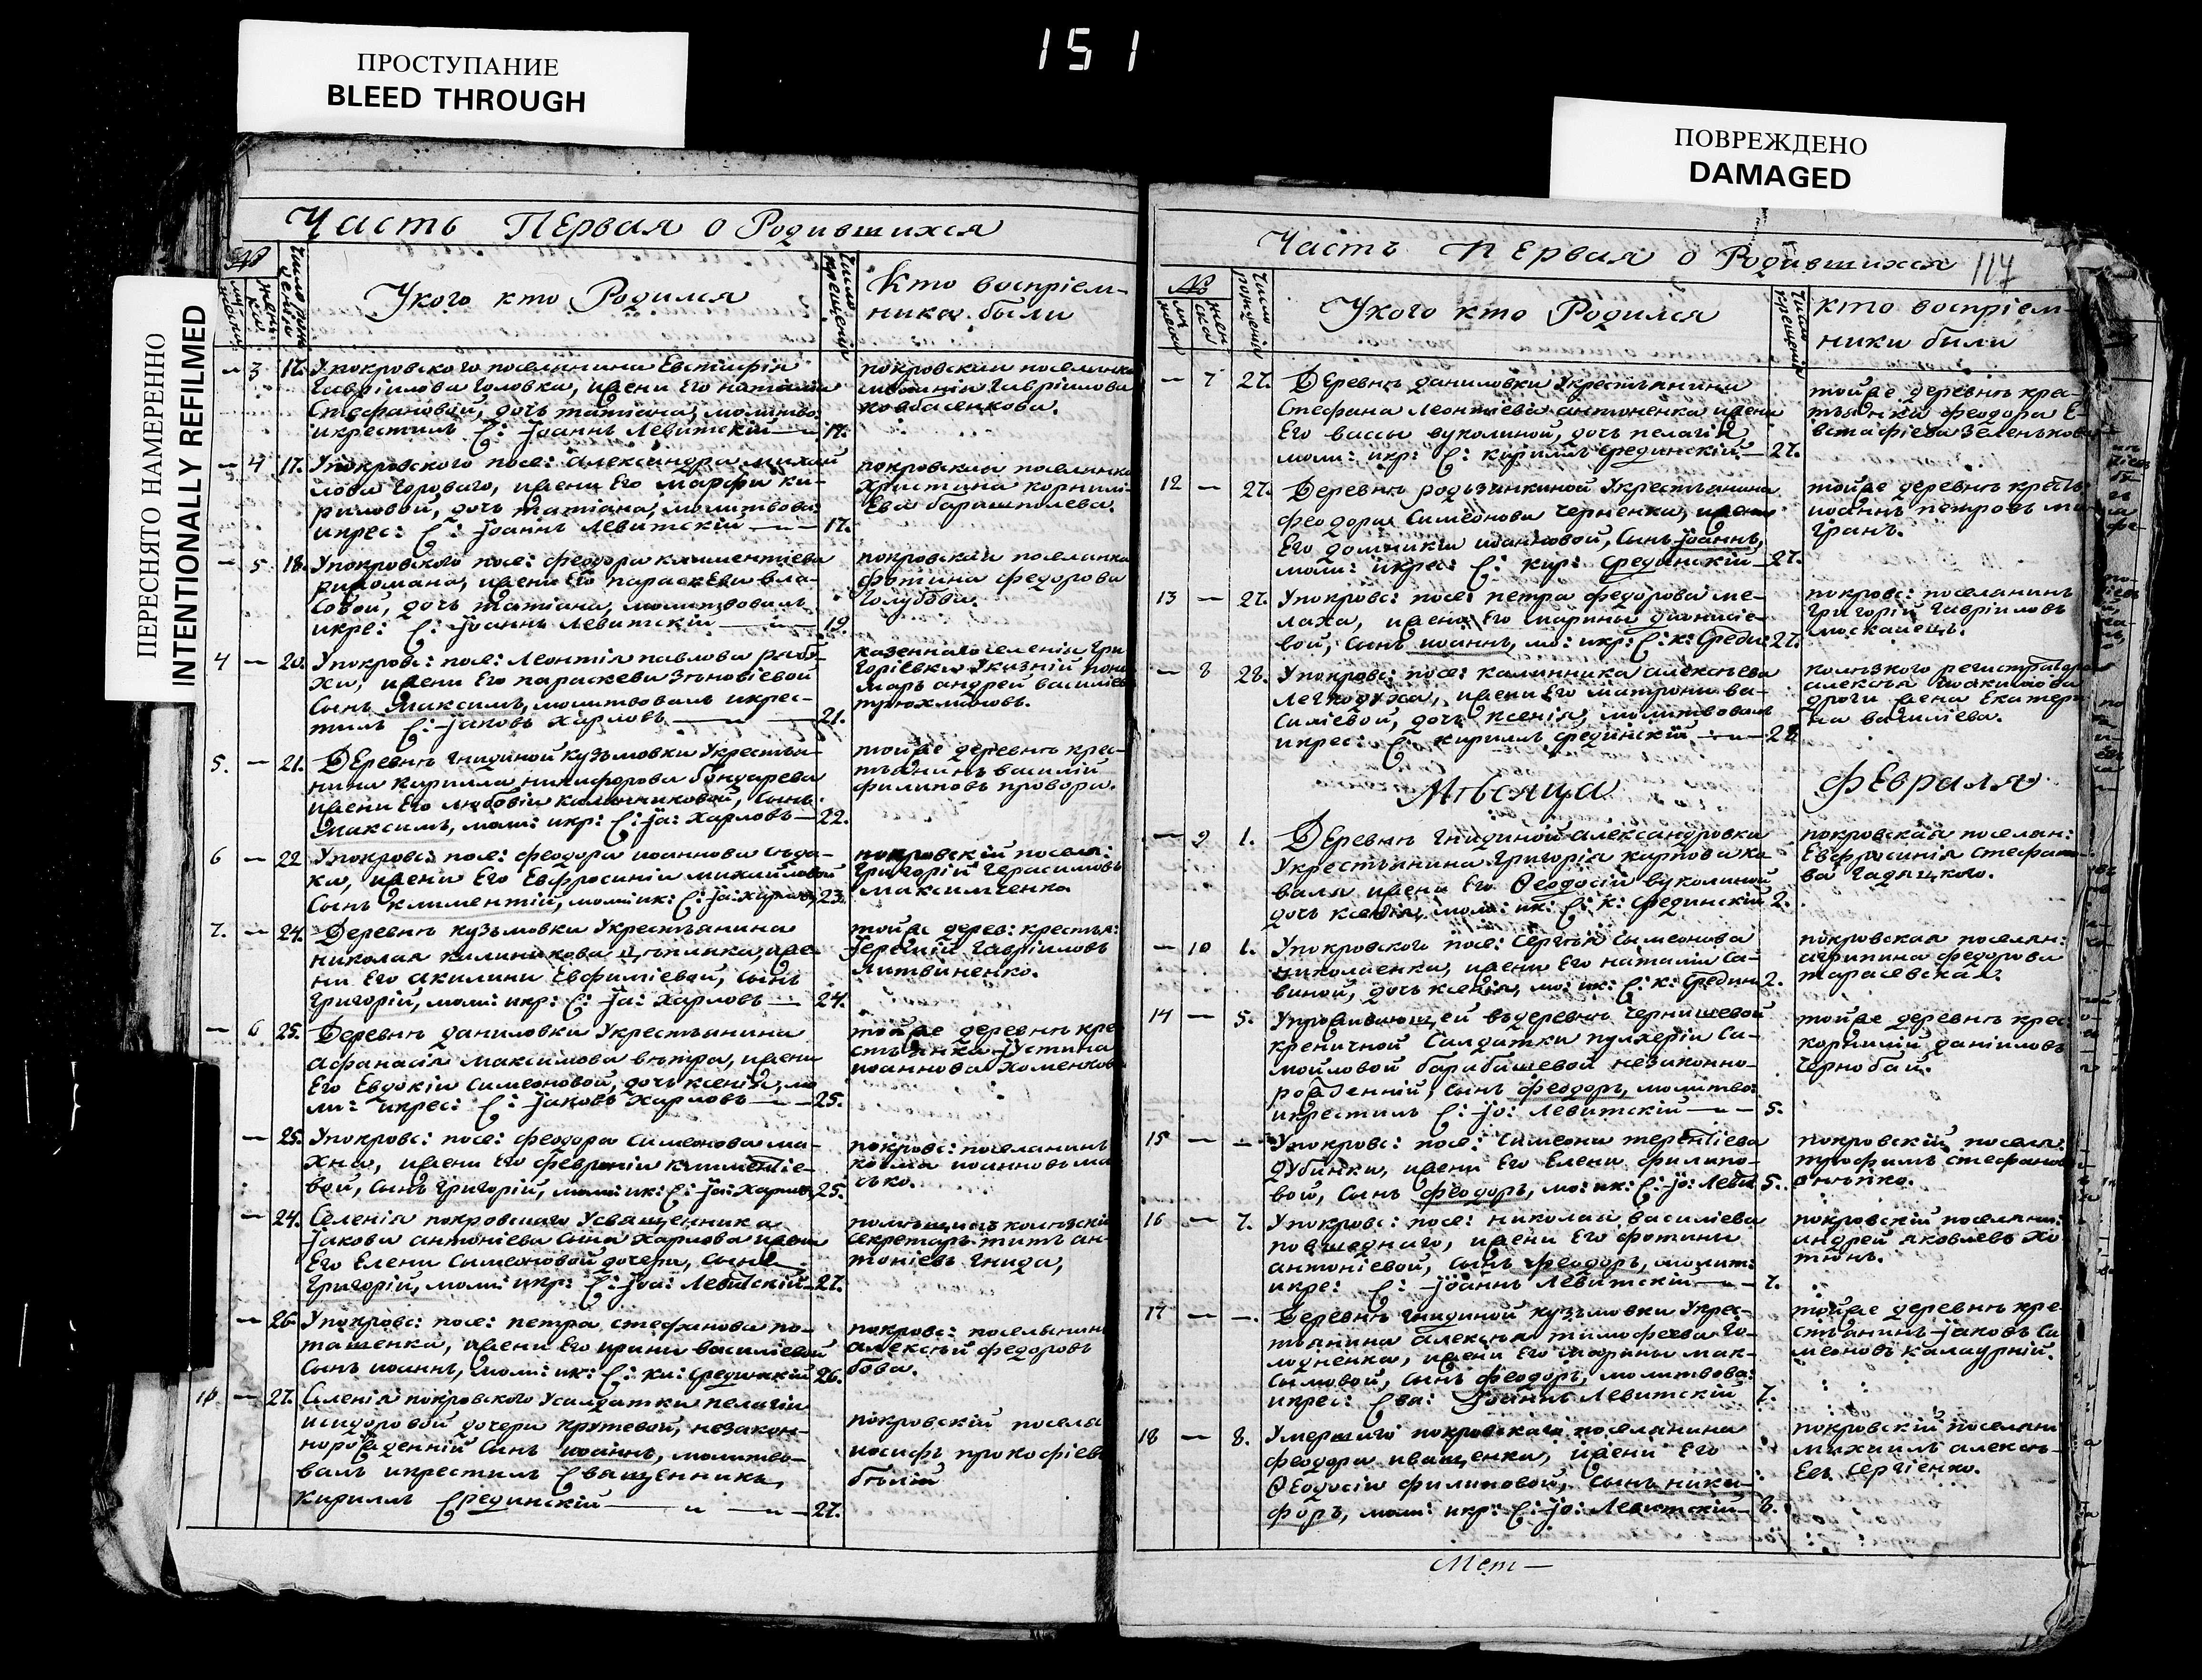 151
ПРОСТУПАНИЕ
BLEED THROUGH
ПОВРЕЖДЕНО
DAMAGED
ПЕРЕСНЯТО НАМЕРЕННО
INTENTIONALLY REFILMED
Часть Первая о Родившихся
Укого кто Родился
Кто воспріем-
ники были
3 17. Упокровского поселянина Евстафія
Гавріилова Головка, жени Его наталіи
Стефановой, дочь татіана, молитво:
икрестилъ С: Іоаннъ Левитскій 17.
покровская поселянка
Гавріилова
ковбасенкова.
4 17. Упокровского посе: александра михай
лова Горового, жени Его марфи ки-
риловой, дочь татіана, молитвова:
икрес: С: Іоаннъ Левитскій 17.
покровская поселянка
Христина корнилі-
Ева баришполева.
5 18. Упокровского посе: феодора климентіева
жени Его параскеви вла-
совой, дочь татіана, молитвовалъ
икре: С: Іоаннъ Левитскій 19.
покровская поселянка
фотина федорова
Голубова.
4 20. Упокровс: посе: Леонтія павлова
жени Его параскеви Зѣновіевой
Сынъ Максимъ, молитвовалъ икрес-
тилъ С: Іаковъ Харловъ 21.
казеннаго селенія Гри
горіевки Указній поно
марь андрей василіевъ
5. 21. Деревнѣ Гнидиной кузьмовки Укрестья-
нина кирилла никифорова бондарева
жени Его любовіи калинниковой, сынъ
Максимъ, моли: икр: С: Іа: Харловъ 22.
тойже деревнѣ крес-
тьянинъ василій
филиповъ провора.
6 22 Упокровс: посе: феодора иоаннова сѣда-
ка, жени Его Евфросиніи михайловой
Сынъ климентій, моли: ик: С: Іа: Харловъ 23.
покровскій поселя:
Григорій Герасимовъ
максименко
7. 24. Деревнѣ кузьмовки Укрестьянина
николая калиникова жe-
ни Его акилини Евфиміевой, сынъ
Григорій, моли: икр: С: Іа: Харловъ 24.
тойже дерев: крестья:
Іеремій Гавріиловъ
Литвиненко.
6 25. Деревнѣ даниловки Укрестьянина
Афанасія Максимова вѣтра, жени
Его Евдокіи Симеоновой, дочь ксенія, мо
ли: икрес: С: Іаковъ Харловъ 25.
тойже деревнѣ кре
стьянка Іустина
иоаннова Хоменкова
25. Упокровс: посе: феодора Симеонова ма-
хна, жени Его февроніи климентіе-
вой, Сынъ Григорій, моли: ик: С: Іа: Харловъ 25.
покровс: поселянинъ
козма иоанновъ ма
сько.
24. Селенія покровского Усвященника
Іакова антоніева сына Харлова жени
Его Елени Симеоновой дочери, сынъ
Григорій, моли: икр: С: Іоа: Левитскій 27.
помѣщикъ колежскій
секретарь титъ ан-
тоніевъ Гнида,
26 Упокровс: посе: петра стефанова по-
ташенка, жени Его ирини василіевой
Сынъ иоаннъ, моли: ик: С: ки: Срединскій 26.
покровс: поселянинъ
алексѣй федоровъ
бова.
10. 27. Селенія покровского Усалдатки пелагіи
исидоровой дочери крутевой, незакон-
норожденній Сынъ иоаннъ, молитво-
валъ икрестилъ Священникъ
Кирилъ Срединскій 27.
покровскій поселя
иосифъ прокофіевъ
бѣлій
Часть Первая о Родившихся
114
Укого кто Родился
кто воспріем-
ники были
7 27. Деревнѣ даниловки Укрестьянина
Стефана Леонтіева антоненка жени
Его вассы вуколиной, дочь пелагія
моли: икр: С: кирилъ Срединскій 27.
тойже деревнѣ крес-
тьянка феодора Е-
встафіева Зеленькова
12 27. Деревнѣ родзянкиной Укрестьянина
феодора Симеонова черненка, жени
Его домникіи иоанновой, Сынъ Іоаннъ,
моли: икрес: С: кир: Срединскій 27.
тойже деревнѣ кресть
иоаннъ петровъ ми
гранъ.
13 27. Упокровс: посе: петра федорова ме-
лаха, жени Его марины дионисіе-
вой, Сынъ иоаннъ, мо: икр: С: к: Среди: 27.
покровс: поселянинъ
Григорій Гавріиловъ
москалецъ.
8 28. Упокровс: посе: калинника алексѣева
Легкодуха, жени Его матроны ва-
силіевой, дочь ксенія, молитвовалъ
икрес: С: кириллъ Срединскій 28.
колѣзкого регистратора
алексѣя иоакимова
дроги жена Екатери
на василіева.
Мѣсяца Февраля
9 1. Деревнѣ Гнидиной александровки
Укрестьянина Григорія карпова ко
валя жени Его Феодосіи вуколиной
дочь ксенія, моли: ик: С: к: Срединскій 2.
покровская поселян:
Евфросинія стефано
ва Гадяцкого.
10 1. Упокровского посе: Сергѣя Симеонова
николаенка, жени Его наталіи Са-
виной, дочь ксенія, мо: ик: С: к: Средин 2.
покровская поселян:
агрипина федорова
тарасевская.
14 5. Упроживающей въдеревнѣ чернишевой
креничной Салдатки пулхеріи Са-
мойловой барабашевой незаконно-
рожденній, сынъ феодоръ, молитво:
икрестилъ С: Іо: Левитскій 5.
тойже деревнѣ крес:
корнилій даніиловъ
Чернобай.
15 Упокровс: посе: Симеона терентіева
дубинки, жени Его Елени филипо-
вой, Сынъ феодоръ, мо: ик: С: Іо: Леви 5.
покровскій поселя:
трофимъ стефановъ
онѣпко.
16 7. Упокровс: посе: николая василіева
повшеднаго, жени Его фотини
антоніевой, Сынъ феодоръ, молит:
икре: С: Іоаннъ Левитскій 7.
покровскій поселяни:
андрей яковлевъ Хо
тюнъ.
17 Деревнѣ Гнидиной кузьмовки Укрес-
тьянина алексѣя тимофеева Го-
лодненка, жени Его марины мак-
симовой, Сынъ феодоръ, молитвова:
икрес: Свя: Іоаннъ Левитскій 7.
тойже деревнѣ кре
стьянинъ Іаковъ Си
меоновъ калаурній.
18 8. Умершаго покровскаго поселянина
феодора иващенка, жени Его
Феодосіи филиповой, Сынъ ники-
форъ, моли: икр: С: Іо: Левитскій 8.
покровскій поселяни
михаилъ алексѣ-
евъ Сергіенко.
Мет-